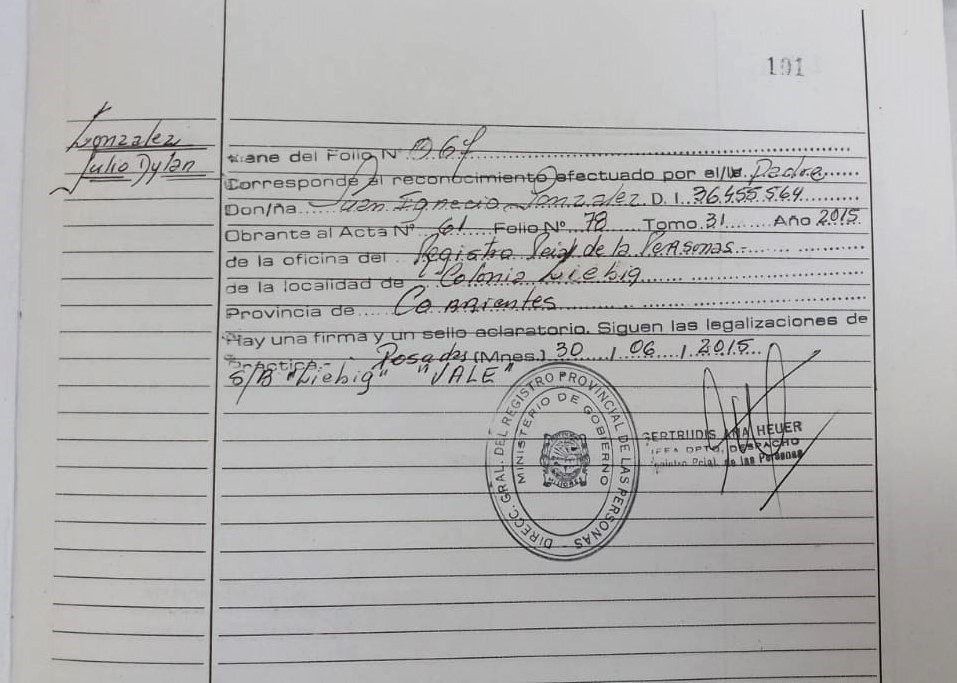 101
Gonzalez
Julio Dylan
Viane del Folio Nº 067
Corresponde al reconocimiento efectuado por el/la Padre
Don/ña Juan Ignacio Gonzalez D. I. 36.455.564
Obrante al Acta Nº 61 Folio Nº 78 Tomo 31 Año 2015
de la oficina del Registro Pcial de la Personas-
de la localidad de Colonia Liebig
Provincia de Corrientes
Hay una firma y un sello aclaratorio. Siguen las legalizaciones de
Práctica.- Posadas (Mnes.) 30 / 06 / 2015
S/B "Liebig" "VALE"
DIRECC. GRAL. DEL REGISTRO PROVINCIAL DE LAS PERSONAS -
MINISTERIO DE GOBIERNO
MISIONES
GERTRUDIS ANA HEUER
JEFA DPTO. DESPACHO
Registro Pcial. de las Personas